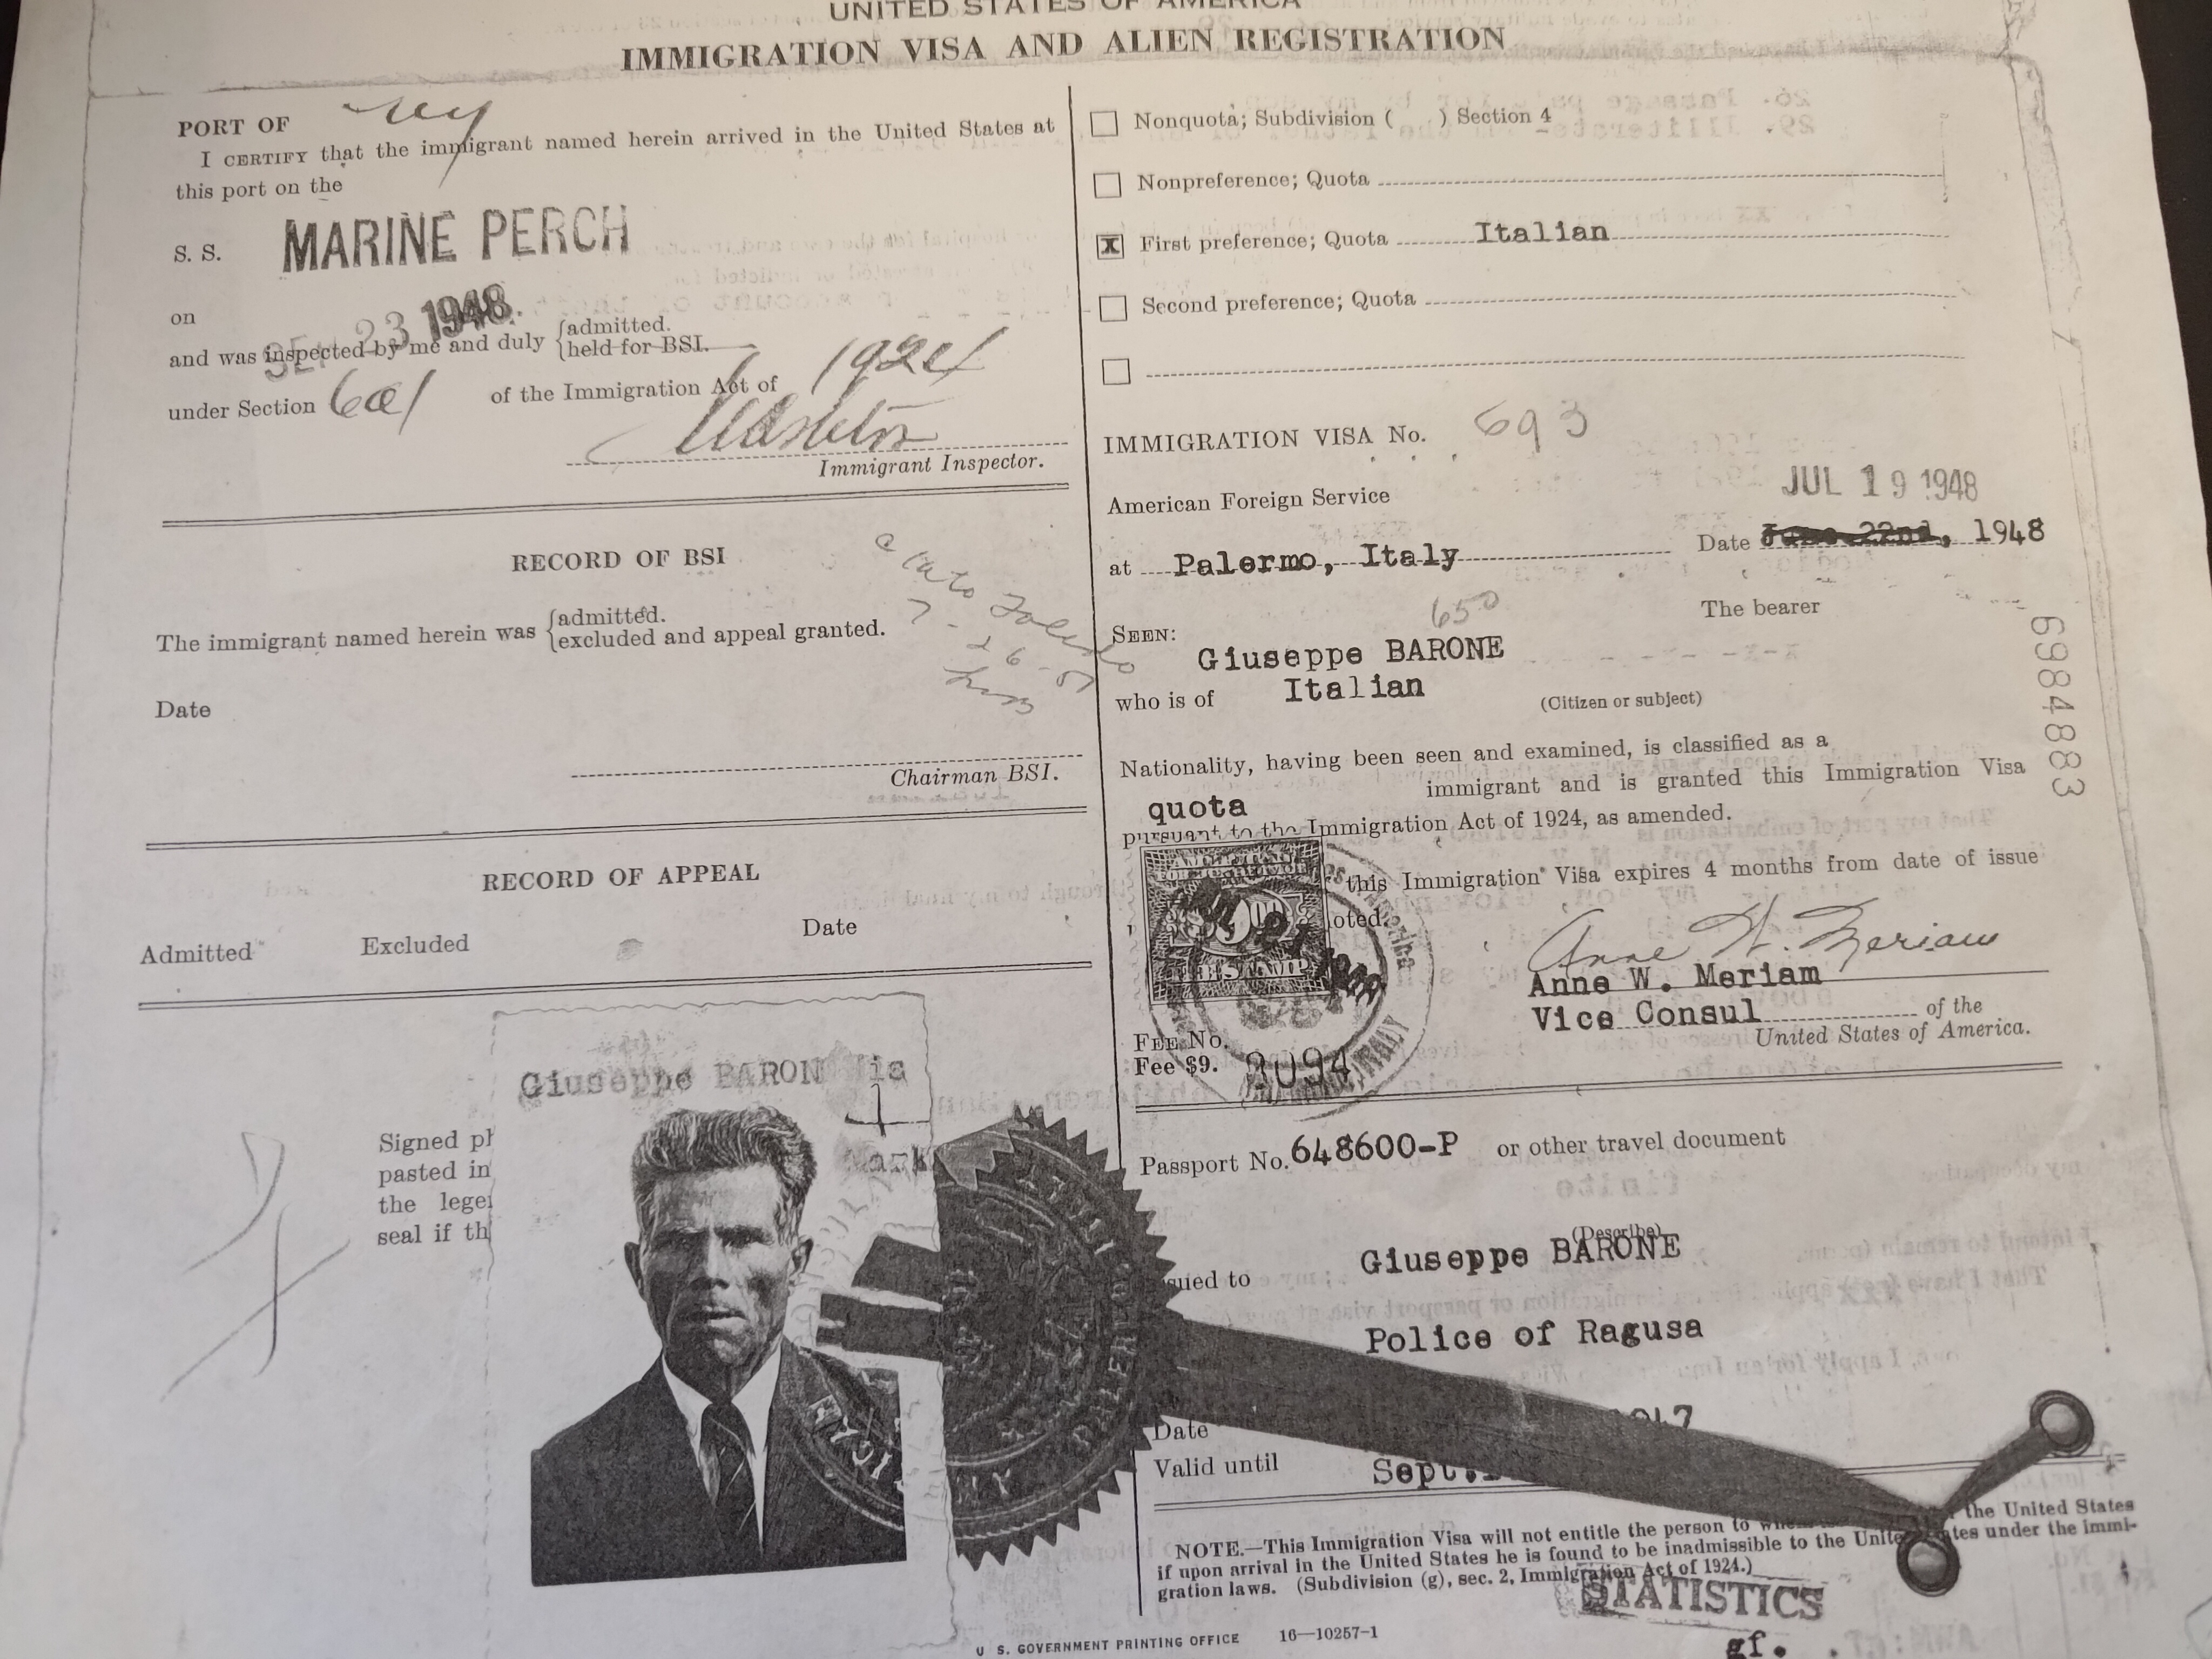 UNITED STATES OF AMERICA
IMMIGRATION VISA AND ALIEN REGISTRATION
PORT OF ny
I CERTIFY that the immigrant named herein arrived in the United States at
this port on the
S. S. MARINE PERCH
on SEP 23 1948
and was inspected by me and duly {admitted.
{held for BSI.
under Section 6a1 of the Immigration Act of 1924
Immigrant Inspector.
RECORD OF BSI
The immigrant named herein was {admitted.
{excluded and appeal granted.
Date
Chairman BSI.
RECORD OF APPEAL
Admitted Excluded Date
Giuseppe BARON
Signed ph
pasted in
the lege
seal if th
Nonquota; Subdivision ( ) Section 4
Nonpreference; Quota
X First preference; Quota Italian
Second preference; Quota
IMMIGRATION VISA No. 693
American Foreign Service
JUL 19 1948
at Palermo, Italy Date June 22nd, 1948
650
SEEN: The bearer
Giuseppe BARONE
who is of Italian (Citizen or subject)
Nationality, having been seen and examined, is classified as a
quota immigrant and is granted this Immigration Visa
pursuant to the Immigration Act of 1924, as amended.
this Immigration Visa expires 4 months from date of issue
oted.
FEE STAMP
Anne W. Meriam
Anne W. Meriam
Vice Consul of the
United States of America.
FEE No.
Fee $9. 9094
6984883
Passport No. 648600-P or other travel document
(Describe)
sued to Giuseppe BARONE
Police of Ragusa
Date
Valid until Sept.
NOTE.—This Immigration Visa will not entitle the person to the United States
if upon arrival in the United States he is found to be inadmissible to the United States under the immi-
gration laws. (Subdivision (g), sec. 2, Immigration Act of 1924.)
STATISTICS
gf.
U. S. GOVERNMENT PRINTING OFFICE 16—10257-1